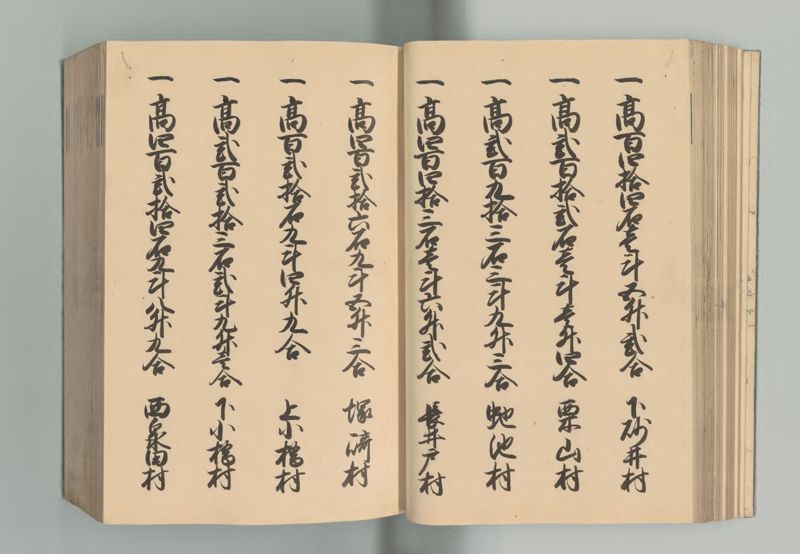 一高百四拾四石壱斗五升弐合 下砂井村
一高弐百拾弐石壱斗壱升四合 栗山村
一高弐百九拾三石三斗九升三合 蛇池村
一高四百四拾三石壱斗六升弐合 長井戸村
一高四百弐拾六石九斗五升三合 塚崎村
一高百弐拾石九斗四升九合 上小橋村
一高弐百弐拾三石弐斗九升壱合 下小橋村
一高四百弐拾四石九斗八升九合 西泉田村